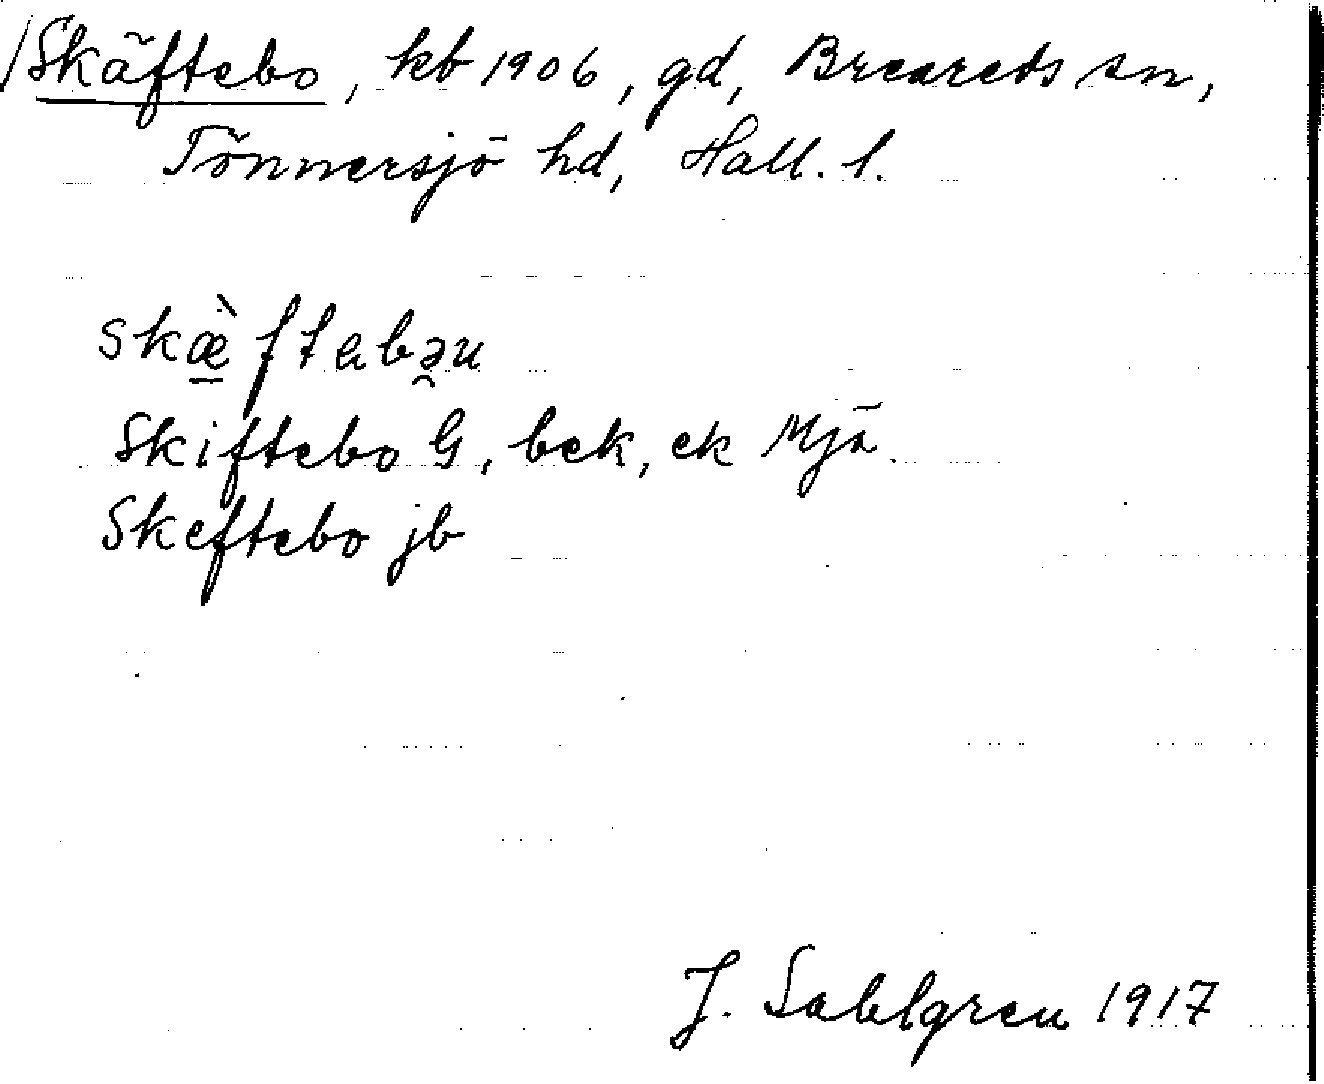 Skäftebo, kb 1906, gd, Breareds sn,
Tönnersjö hd, Hall. l.
skæ̱̀ftabə̯u
Skiftebo G, bek, ek Mjä
Skeftebo jb
J. Sahlgren 1917